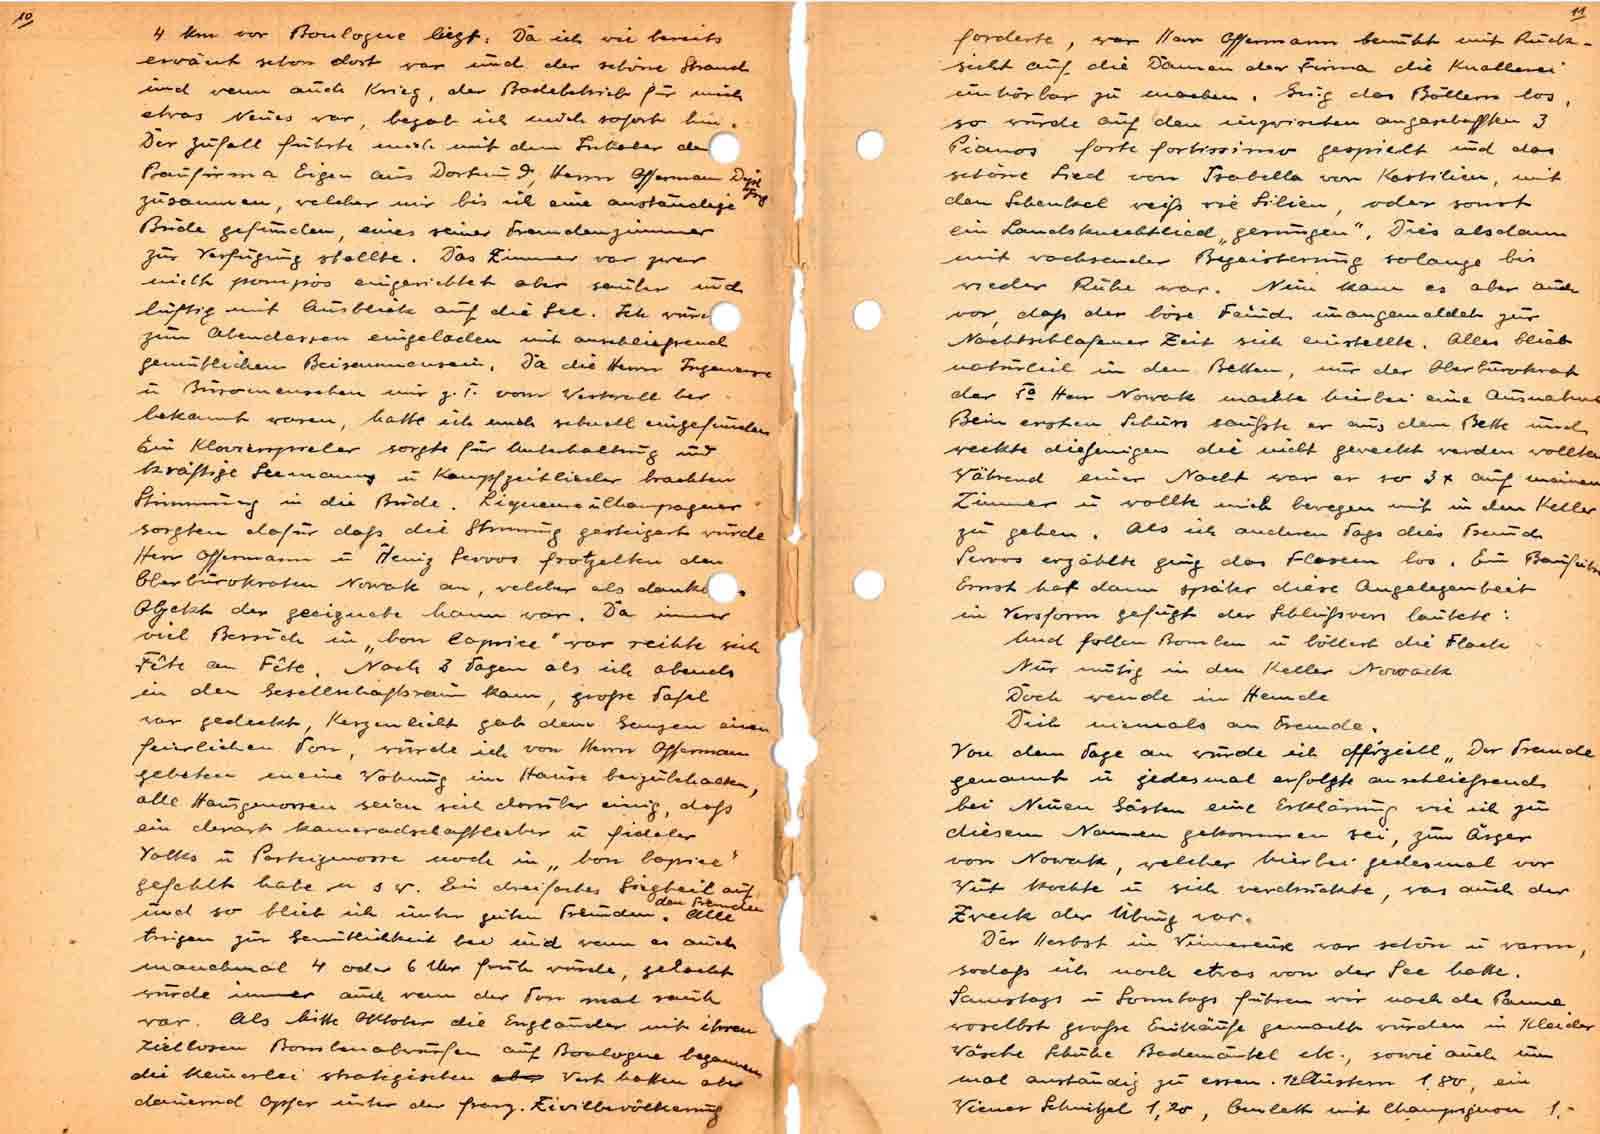 10
4 km vor Boulogne liegt. Da ich wie bereits
erwänt schon dort war und der schöne Strand
und wenn auch Krieg, der Badebetrieb für mich
etwas Neues war, begab ich mich sofort hin.
Der Zufall führte mich mit dem Inhaber der
Baufirma Eigen aus Dortmund, Herrn Offermann Dipl Ing
zusammen, welcher mir bis ich eine anständige
Bude gefunden, eines seiner Fremdenzimmer
zur Verfügung stellte. Das Zimmer war zwar
nicht pompös eingerichtet aber sauber und
luftig mit Ausblick auf die See. Ich wurde
zum Abendessen eingeladen mit anschliessend
gemütlichen Beisammensein. Da die Herrn Ingenieure
u Büromenschen mir z. T. vom Westwall her
bekannt waren, hatte ich mich schnell eingefunden
Ein Klavierspieler sorgte für Unterhaltung und
kräftige Seemanns u Kampfzeitlieder brachten
Stimmung in die Bude. Liqueure u Champagner
sorgten dafür daß die Stimmung gesteigert wurde
Herr Offermann u Servos frotzelten den
Oberbürokraten Nowak an, welcher als dankbares
Objekt der geeignete Mann war. Da immer
viel Besuch in „bon Caprice" war reihte sich
Fête an Fête. Nach 3 Tagen als ich abends
in den Gesellschaftsraum kam, große Tafel
war gedeckt, Kerzenlicht gab dem Ganzen einen
feierlichen Ton, wurde ich von Herrn Offermann
gebeten meine Wohnung im Hause beizubehalten,
alle Hausgenossen seien sich darüber einig, daß
ein derart kameradschaftlicher u fideler
Volks u Parteigenosse noch in „bon Caprice"
gefehlt habe u s w. Ein dreifaches Siegheil auf
den Fremden
und so blieb ich unter guten Freunden. Alle
trugen zur Gemütlichkeit bei und wenn es auch
manchmal 4 oder 6 Uhr früh wurde, gelacht
wurde immer auch wenn der Ton mal rauh
war. Als Mitte Oktober die Engländer mit ihren
ziellosen Bombenabwürfen auf Boulogne begannen
die keinerlei strategischen Wert hatten aber
dauernd Opfer unter der franz. Zivilbevölkerung
11
forderte, war Herr Offermann bemüht mit Rück-
sicht auf die Damen der Firma die Knallerei
unhörbar zu machen. Ging das Böllern los,
so wurde auf den inzwischen angeschafften 3
Pianos forte fortissimo gespielt und das
schöne Lied von Isabella von Kastilien, mit
den Schenkel weiß wie Lilien, oder sonst
ein Landsknechtlied „gesungen". Dies alsdann
mit wachsender Begeisterung solange bis
wieder Ruhe war. Nun kam es aber auch
vor, daß der böse Feind unangemeldet zur
Nachtschlafener Zeit sich einstellte. Alles blieb
natürlich in den Betten, nur der Oberbürokrat
der Fa Herr Nowak machte hierbei eine Ausnahme
Beim ersten Schuss saußte er aus dem Bette und
weckte diejenigen die nicht geweckt werden wollten
Während einer Nacht war er so 3x auf meinem
Zimmer u wollte mich bewegen mit in den Keller
zu gehen. Als ich anderen Tags dies Freund
Servos erzählte ging das Flaxen los. Ein
Ernst hat dann später diese Angelegenheit
in Versform gefügt der Schlußvers lautete:
Und fallen Bomben u böllert die Flack
Nur mutig in den Keller Nowack
Doch wende im Hemde
Dich niemals an Fremde.
Von dem Tage an wurde ich offiziell „Der Fremde
genannt u jedesmal erfolgte anschliessend
bei Neuen Gästen eine Erklärung wie ich zu
diesem Namen gekommen sei, zum Ärger
von Nowak, welcher hierbei jedesmal vor
Wut kochte u sich verdrückte, was auch der
Zweck der Übung war.
Der Herbst in Wimereux war schön u warm,
sodaß ich noch etwas von der See hatte.
Samstags u Sonntags führen wir nach de Panne
woselbst große Einkäufe gemacht wurden in Kleider
Wäsche Schuhe Bademäntel etc., sowie auch um
mal anständig zu essen. 12 Austern 1,80, ein
Wiener Schnitzel 1,20, Omlett mit Champignon 1,-